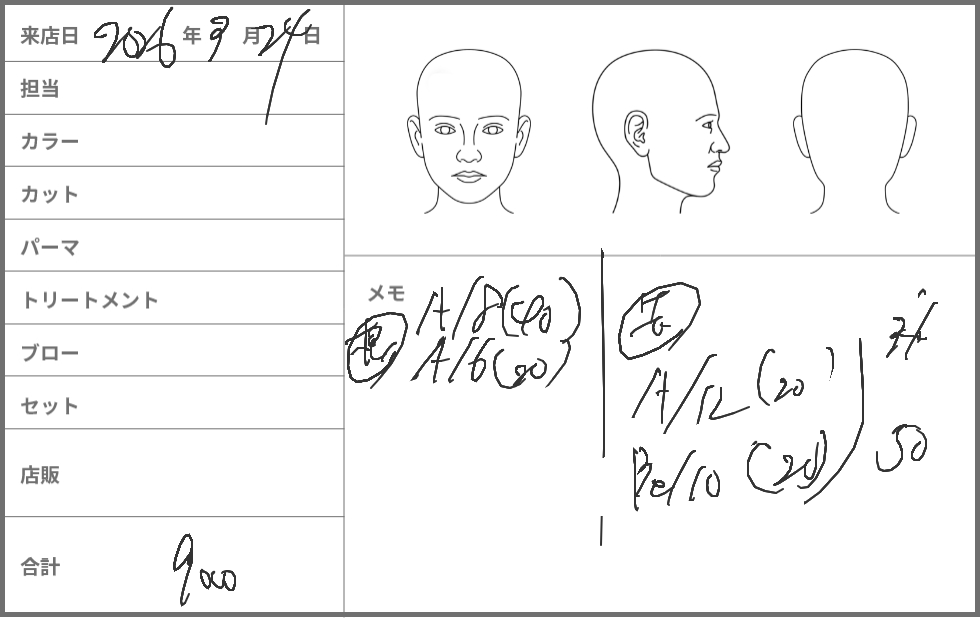 来店日 2026年9月24日
担当
カラー
カット
パーマ
トリートメント
ブロー
セット
店販
合計 9000
メモ
A/8(40)
A/6(20)
A/12(20)
Be/10(20)
50